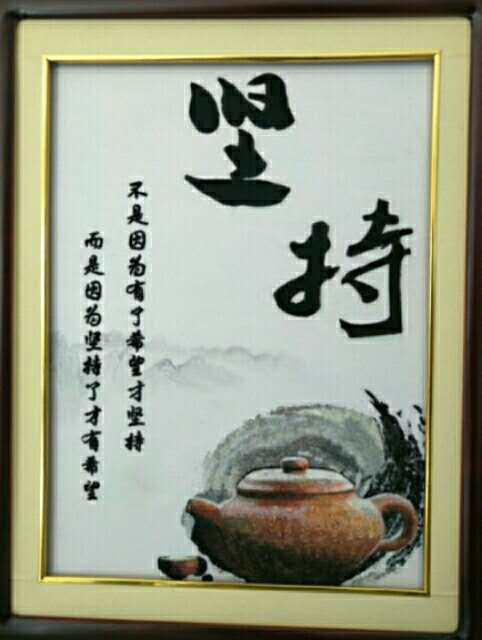 坚持
不是因为有了希望才坚持
而是因为坚持了才有希望